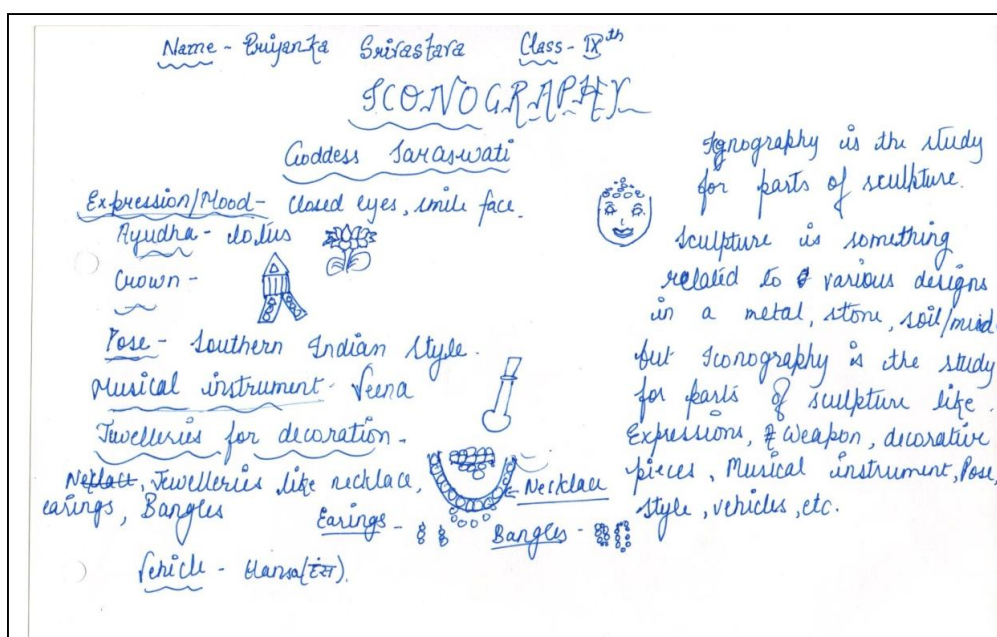 Name - Priyanka Srivastava Class - IXth
ICONOGRAPHY
Goddess Saraswati
Expression/Mood - Closed eyes, smile face.
Ayudha - Lotus
Crown -
Pose - Southern Indian Style.
Musical instrument - Veena
Jewelleries for decoration -
Necklace, Jewelleries like necklace,
earings, Bangles
Necklace
Earings -
Bangles -
Vehicle - Hansa (हंस).
Ignography is the study
for parts of sculpture.
Sculpture is something
related to various designs
in a metal, stone, soil/mud
but Iconography is the study
for parts of sculpture like
Expressions, Weapon, decorative
pieces, Musical instrument, Pose,
style, vehicles, etc.